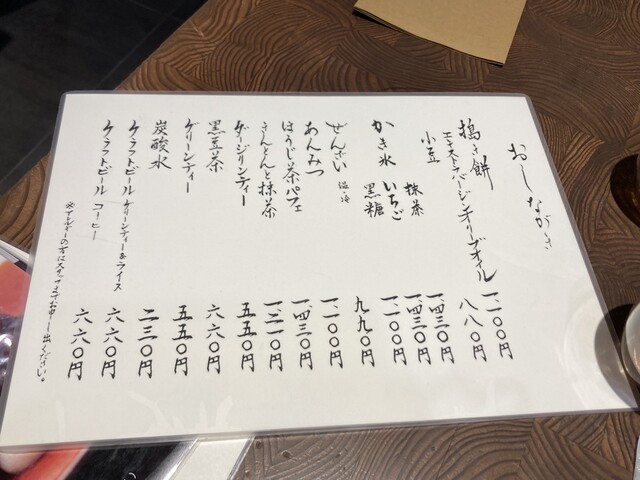 おしながき
搗き餅
エキストラバージンオリーブオイル 一、一〇〇円
小豆 八八〇円
かき氷 抹茶 一、四三〇円
いちご 一、四三〇円
黒糖 一、一〇〇円
ぜんざい 温・冷 九九〇円
あんみつ 一、一〇〇円
ほうじ茶パフェ 一、四三〇円
きんとんと抹茶 一、二一〇円
ダージリンティー 五五〇円
黒豆茶 六六〇円
グリーンティー 五五〇円
炭酸水 二三〇円
クラフトビール グリーンティー&ライス 六六〇円
クラフトビール コーヒー 六六〇円
※アレルギーの方はスタッフまでお申し出ください。